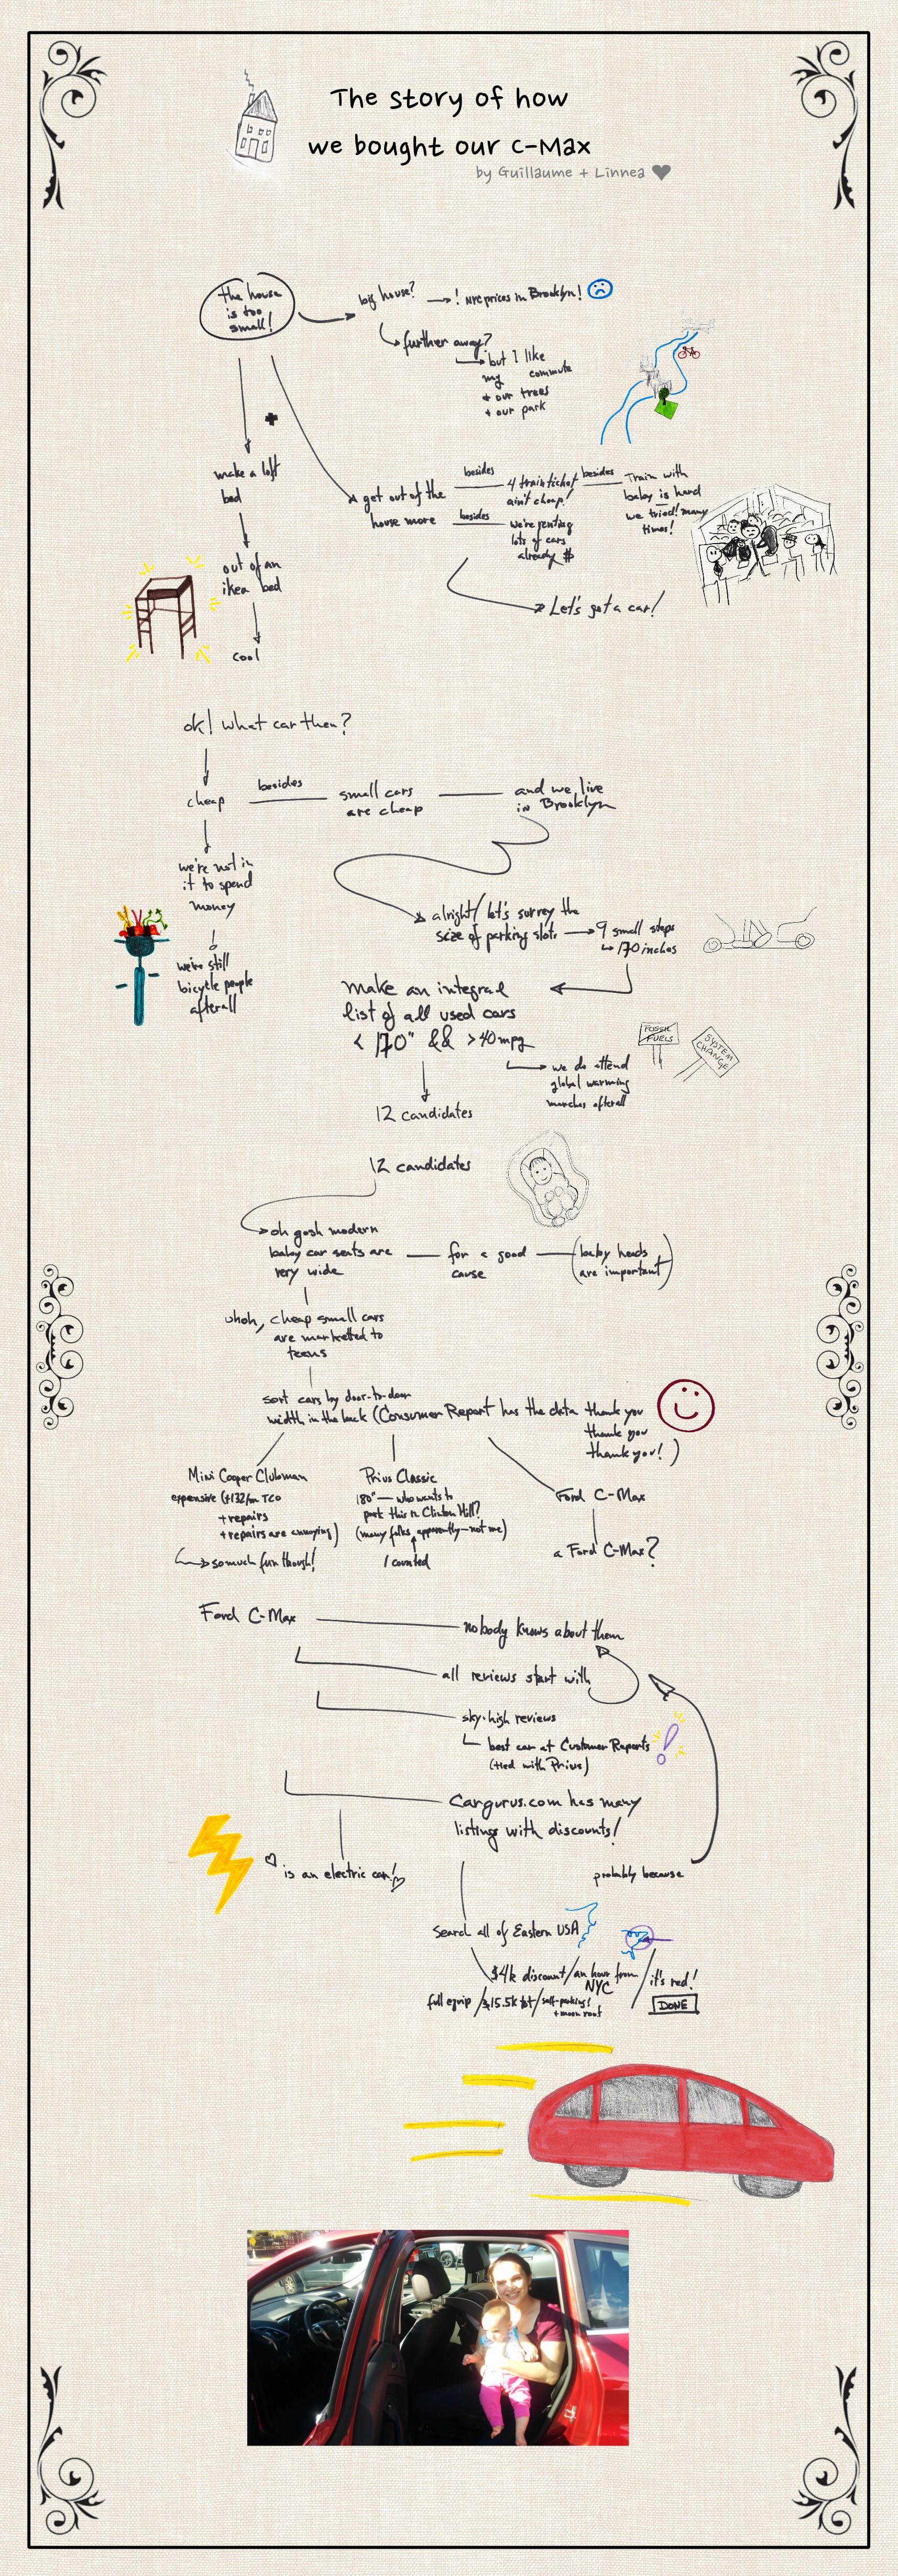 The story of how
we bought our C-Max
by Guillaume + Linnea
the house
is too
small!
big house?
! NYC prices in Brooklyn!
further away?
but I like
my commute
+ our trees
+ our park
make a loft
bed
out of an
ikea bed
cool
get out of the
house more
besides
4 train ticket
ain't cheap!
besides
Train with
baby is hard
we tried! many
times!
besides
we're renting
lots of cars
already $
Let's get a car!
ok! what car then?
cheap
besides
small cars
are cheap
and we live
in Brooklyn
we're not in
it to spend
money
we're still
bicycle people
afterall
alright/ let's survey the
size of parking slots
9 small steps
170 inches
make an integral
list of all used cars
< 170" && >40mpg
we do attend
global warming
marches afterall
FOSSIL
FUELS
SYSTEM
CHANGE
12 candidates
12 candidates
oh gosh modern
baby car seats are
very wide
for a good
cause
(baby heads
are important)
uhoh, cheap small cars
are marketted to
teens
sort cars by door-to-door
width in the back (Consumer Report has the data thank you
thank you
thank you! )
Mini Cooper Clubman
expensive (+132/m TCO
+repairs
+repairs are annoying)
so much fun though!
Prius Classic
180" — who wants to
park this in Clinton Hill?
(many folks apparently—not me)
I counted
Ford C-Max
a Ford C-Max?
Ford C-Max
nobody knows about them
all reviews start with
sky-high reviews
best car at Customer Reports
(tied with Prius)
Cargurus.com has many
listings with discounts!
is an electric car!
probably because
Search all of Eastern USA
$4k discount/an hour from
NYC
/it's red!
full equip /$15.5k tot/self-parking!
+moon roof
DONE